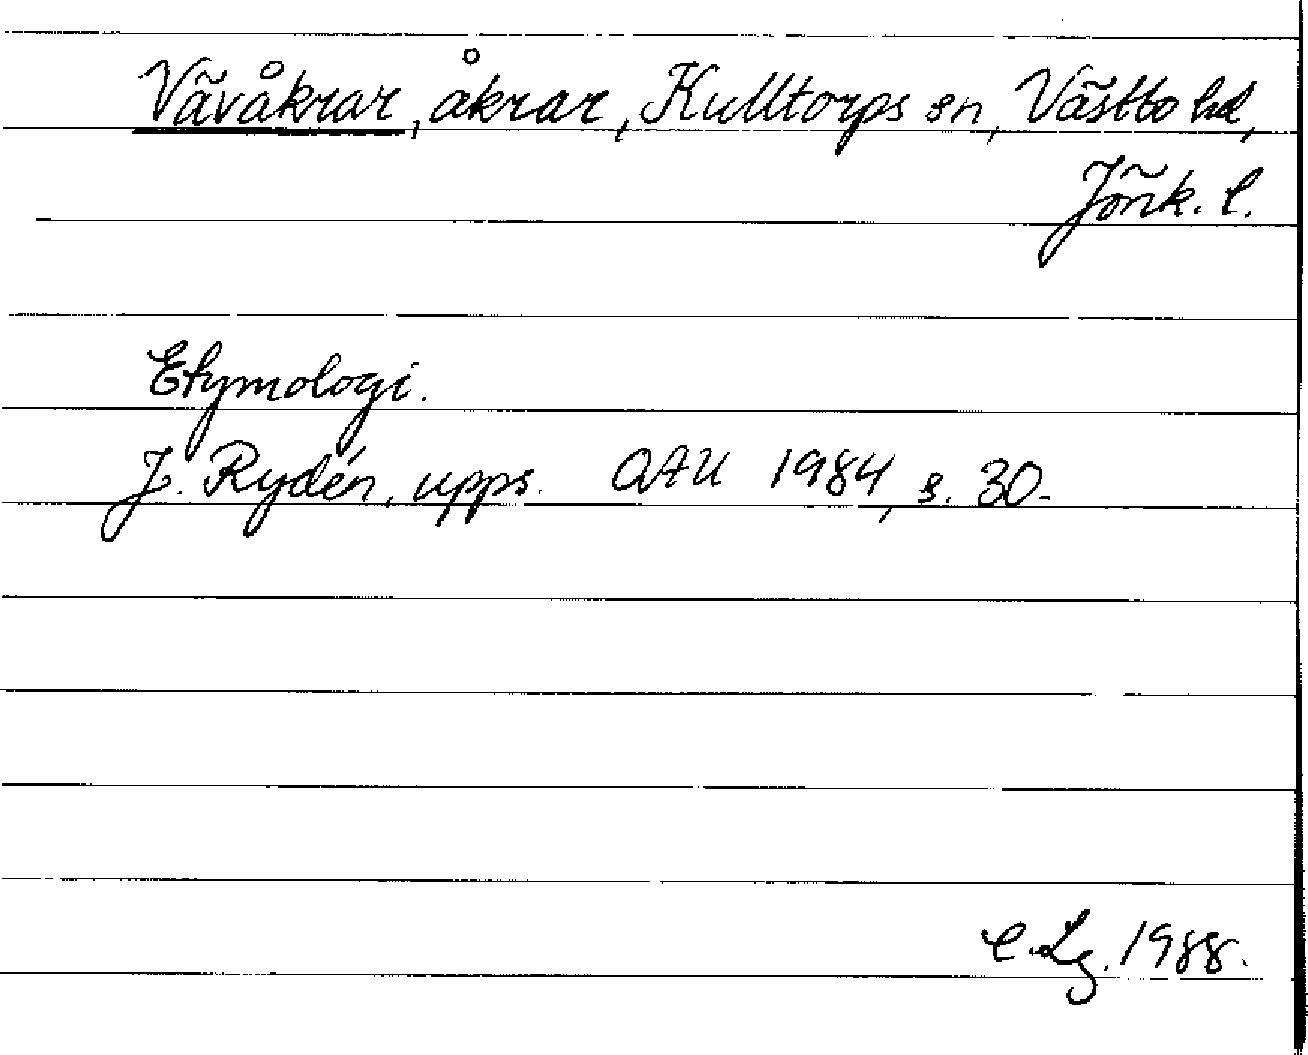 Vävåkrar, åkrar, Kulltorps sn, Västbo hd,
Jönk. l.
Etymologi.
J. Rydén, upps. OAU 1984, s. 30.
C. Lg. 1988.